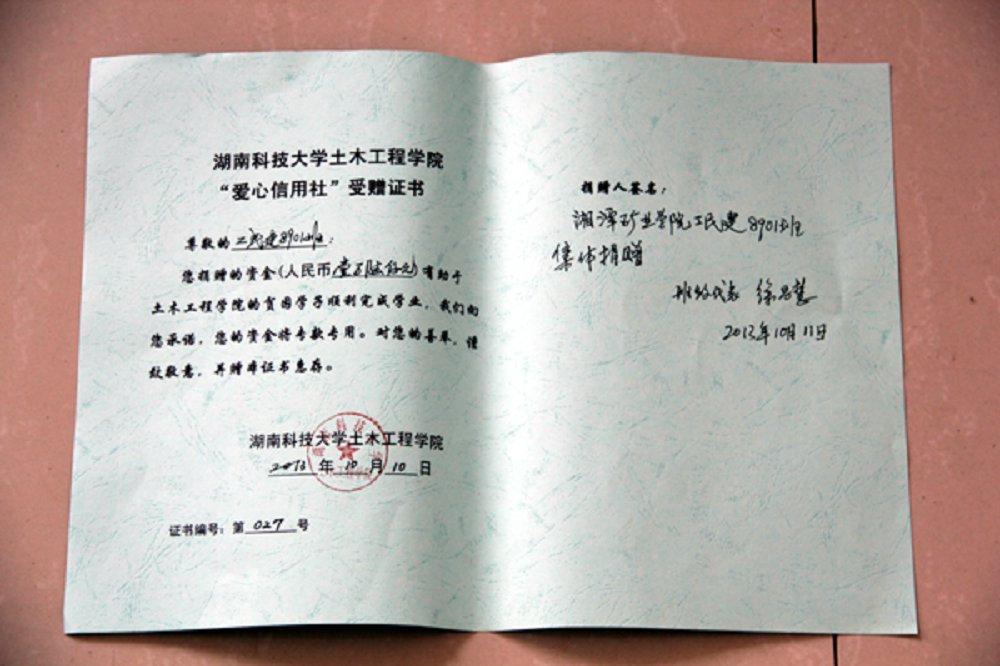 湖南科技大学土木工程学院
“爱心信用社”受赠证书
尊敬的工民建8901班:
您捐赠的资金(人民币壹万陆仟元)有助于
土木工程学院的贫困学子顺利完成学业,我们向
您承诺,您的资金将专款专用。对您的善举,谨
致敬意,并赠本证书惠存。
湖南科技大学土木工程学院
2013年10月10日
证书编号:第027号
捐赠人签名:
湘潭矿业学院工民建8901班
集体捐赠
班级代表 徐
2013年10月11日